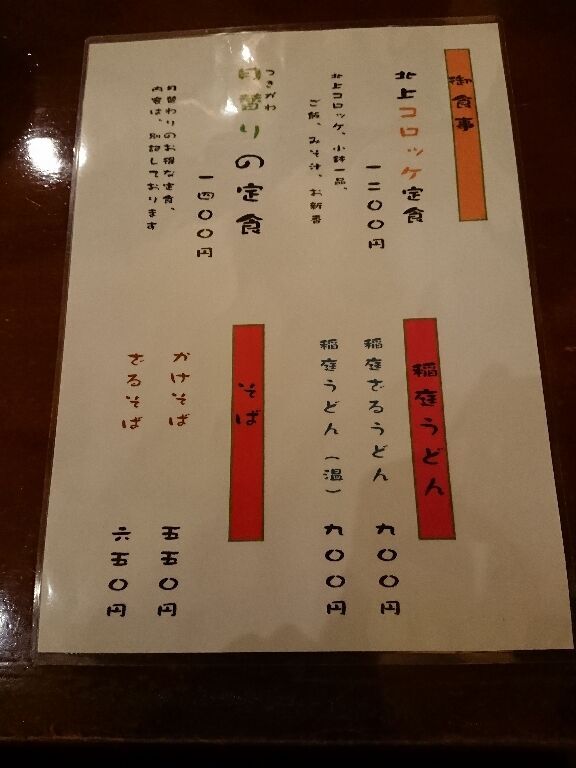 御食事
北上コロッケ定食
一二〇〇円
北上コロッケ、小鉢一品、
ご飯、みそ汁、お新香
つきがわ
日替りの定食
一四〇〇円
日替わりのお得な定食、
内容は、別記しております
稲庭うどん
稲庭ざるうどん 九〇〇円
稲庭うどん(温) 九〇〇円
そば
かけそば 五五〇円
ざるそば 六五〇円